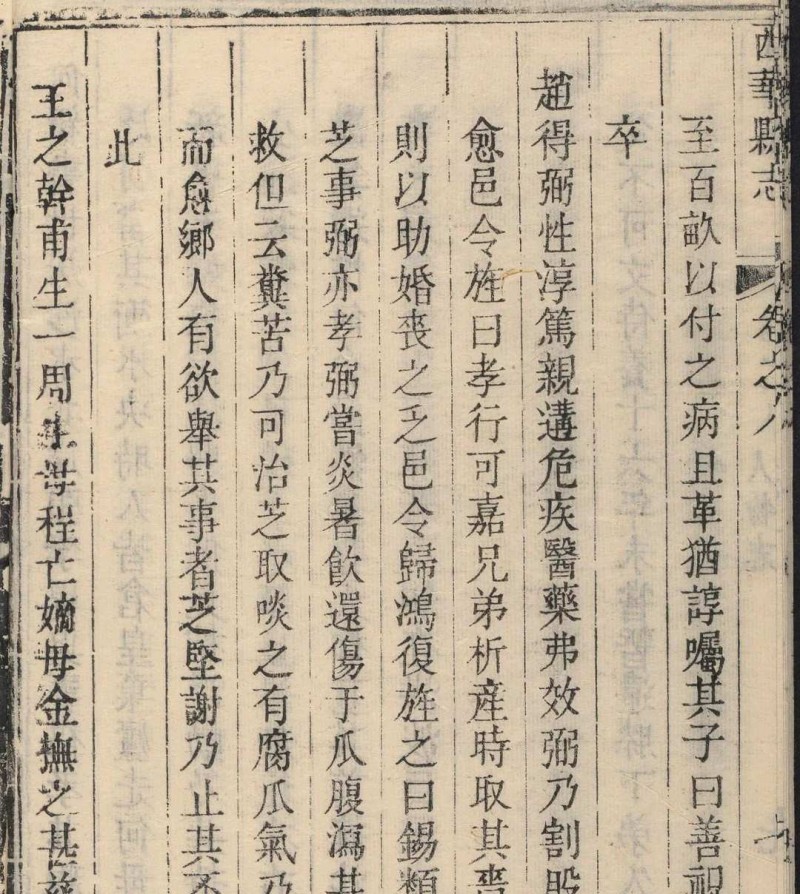 西華縣志 卷之八
至百畝以付之病且革猶諄囑其子曰善祖
卒
趙得弼性淳篤親遘危疾醫藥弗效弼乃割股
愈邑令旌曰孝行可嘉兄弟析産時取其嗇
則以助婚喪之乏邑令歸鴻復旌之曰錫類
芝事弼亦孝弼當炎暑飲還傷于瓜腹瀉甚
救但云糞苦乃可治芝取啖之有腐瓜氣乃
而愈鄉人有欲舉其事者芝堅謝乃止其不
此
王之幹甫生一周生母程亡嫡母金撫之甚慈